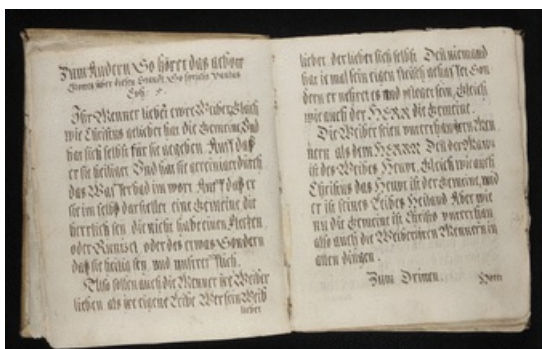 Zum Andern So höret das gebot
Gottes über diesen Standt. So spricht Paulus
Eph: 5.
Ihr Menner liebet ewre Weiber, Gleich
wie Christus geliebet hat die Gemeine, Und
hat sich selbst für sie gegeben, Auff das
er sie heiliget, Und hat sie gereiniget durch
das Wasserbad im wort, Auff das er
sie im selbs darstellet eine Gemeine die
herrlich sey, die nicht habe einen flecken
oder Runtzel, oder des etwas, Sondern
das sie heilig sey, und unstrefflich.
Also sollen auch die Menner ire Weiber
lieben als ire eigene Leibe Wer sein Weib
lieber
liebet, der liebet sich selbst. Den niemand
hat je mal sein eigen fleisch gehasset, Son
dern er nehret es und pfleget sein, Gleich
wie auch der HERR die Gemeine.
Die Weiber seien unterthan iren Men
nern als dem HERRN Den der Mann
ist des Weibes Heupt, Gleich wie auch
Christus das Heupt ist der Gemeine, und
er ist seines Leibes Heiland Aber wie
nu die Gemeine ist Christo unterthan
also auch die Weiber iren Mennern in
allen dingen.
Zum Dritten.